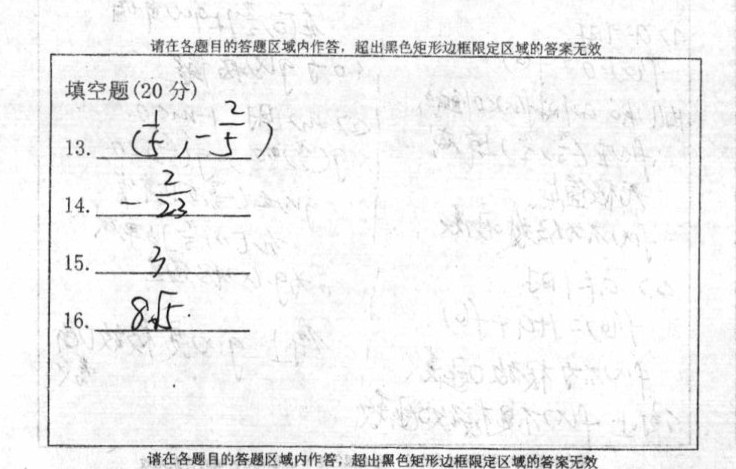 请在各题目的答题区域内作答，超出黑色矩形边框限定区域的答案无效
填空题(20 分)
13. (1/5, -2/5)
14. -2/23
15. 3
16. 8√5.
请在各题目的答题区域内作答，超出黑色矩形边框限定区域的答案无效